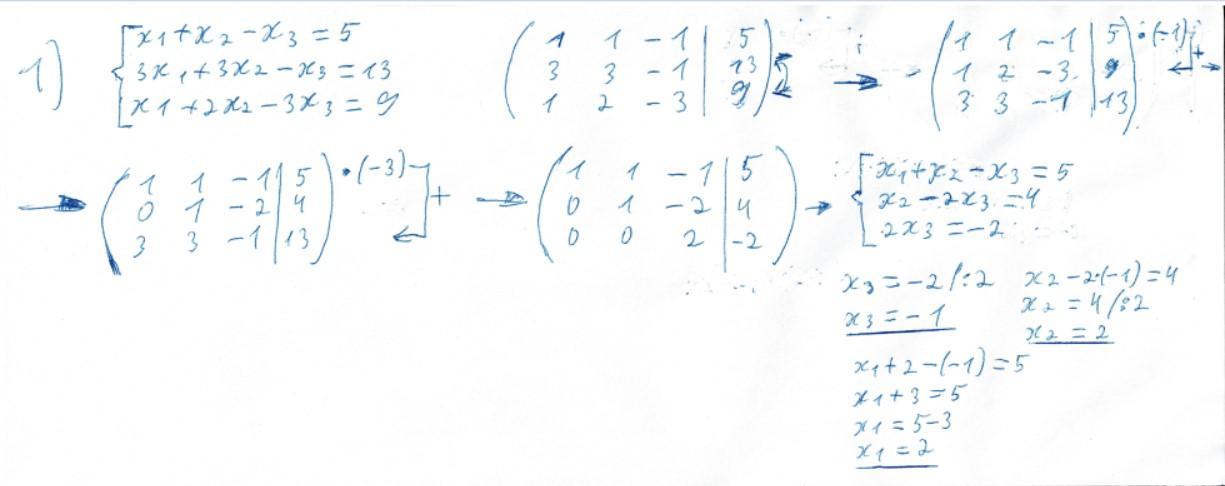 1)
x1+x2-x3=5
3x1+3x2-x3=13
x1+2x2-3x3=9
1 1 -1 | 5
3 3 -1 | 13
1 2 -3 | 9
→
1 1 -1 | 5 •(-1)
1 2 -3 | 9 +
3 3 -1 | 13
→
1 1 -1 | 5 •(-3)
0 1 -2 | 4 +
3 3 -1 | 13
→
1 1 -1 | 5
0 1 -2 | 4
0 0 2 | -2
→
x1+x2-x3=5
x2-2x3=4
2x3=-2
x3=-2/:2
x3=-1
x2-2·(-1)=4
x2=4/:2
x2=2
x1+2-(-1)=5
x1+3=5
x1=5-3
x1=2